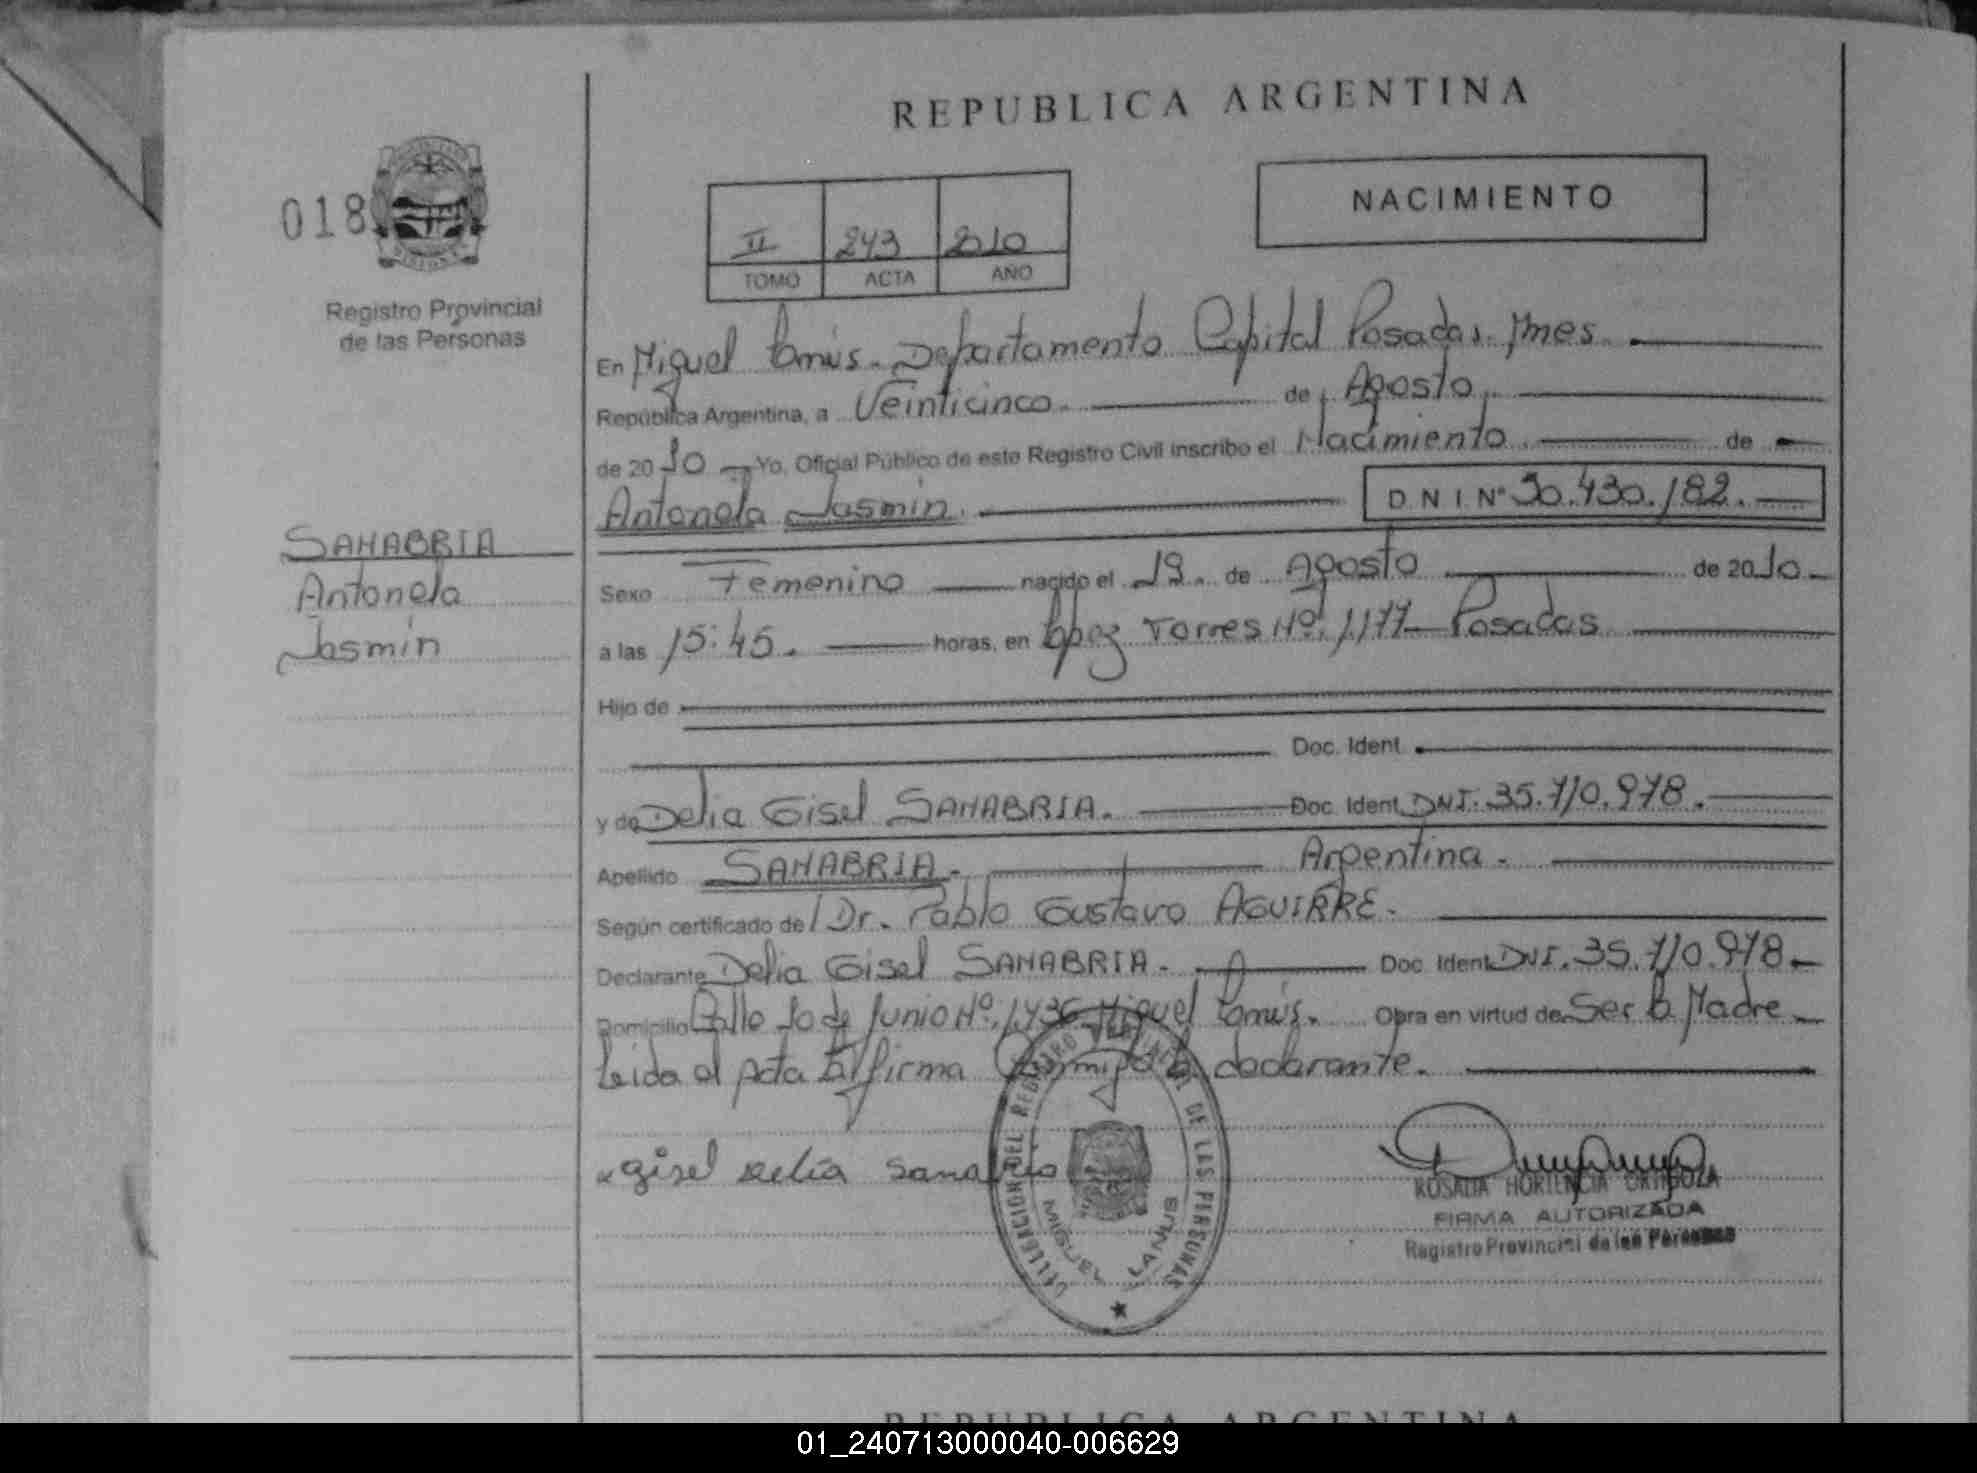 REPUBLICA ARGENTINA
018
NACIMIENTO
II 243 2010
TOMO ACTA AÑO
Registro Provincial
de las Personas
En Miguel Lanús. Departamento Capital Posadas. Mnes.
República Argentina, a Veinticinco. de Agosto.
de 2010 Yo, Oficial Público de este Registro Civil inscribo el Nacimiento de
Antonela Jasmin. D N I Nº 50.430.182.
SANABRIA
Antonela
Jasmin
Sexo Femenino nacido el 19. de Agosto de 2010
a las 15:45. horas, en López Torres Nº 1177 Posadas
Hijo de
Doc. Ident.
y de Delia Gisel SANABRIA. Doc. Ident. DNI. 35.710.978.
Apellido SANABRIA. Argentina.
Según certificado de Dr. Pablo Gustavo AGUIRRE.
Declarante Delia Gisel SANABRIA. Doc. Ident. DNI. 35.710.978
Domicilio Calle 10 de Junio Nº 1736 Miguel Lanús. Obra en virtud de Ser la Madre
Leida el Acta firma Conmigo la declarante.
x gisel delia sanabria
DELEGACION DEL REGISTRO PROVINCIAL DE LAS PERSONAS
MIGUEL LANUS
ROSALIA HORTENCIA
FIRMA AUTORIZADA
Registro Provincial de las Personas
REPUBLICA ARGENTINA
01_240713000040-006629